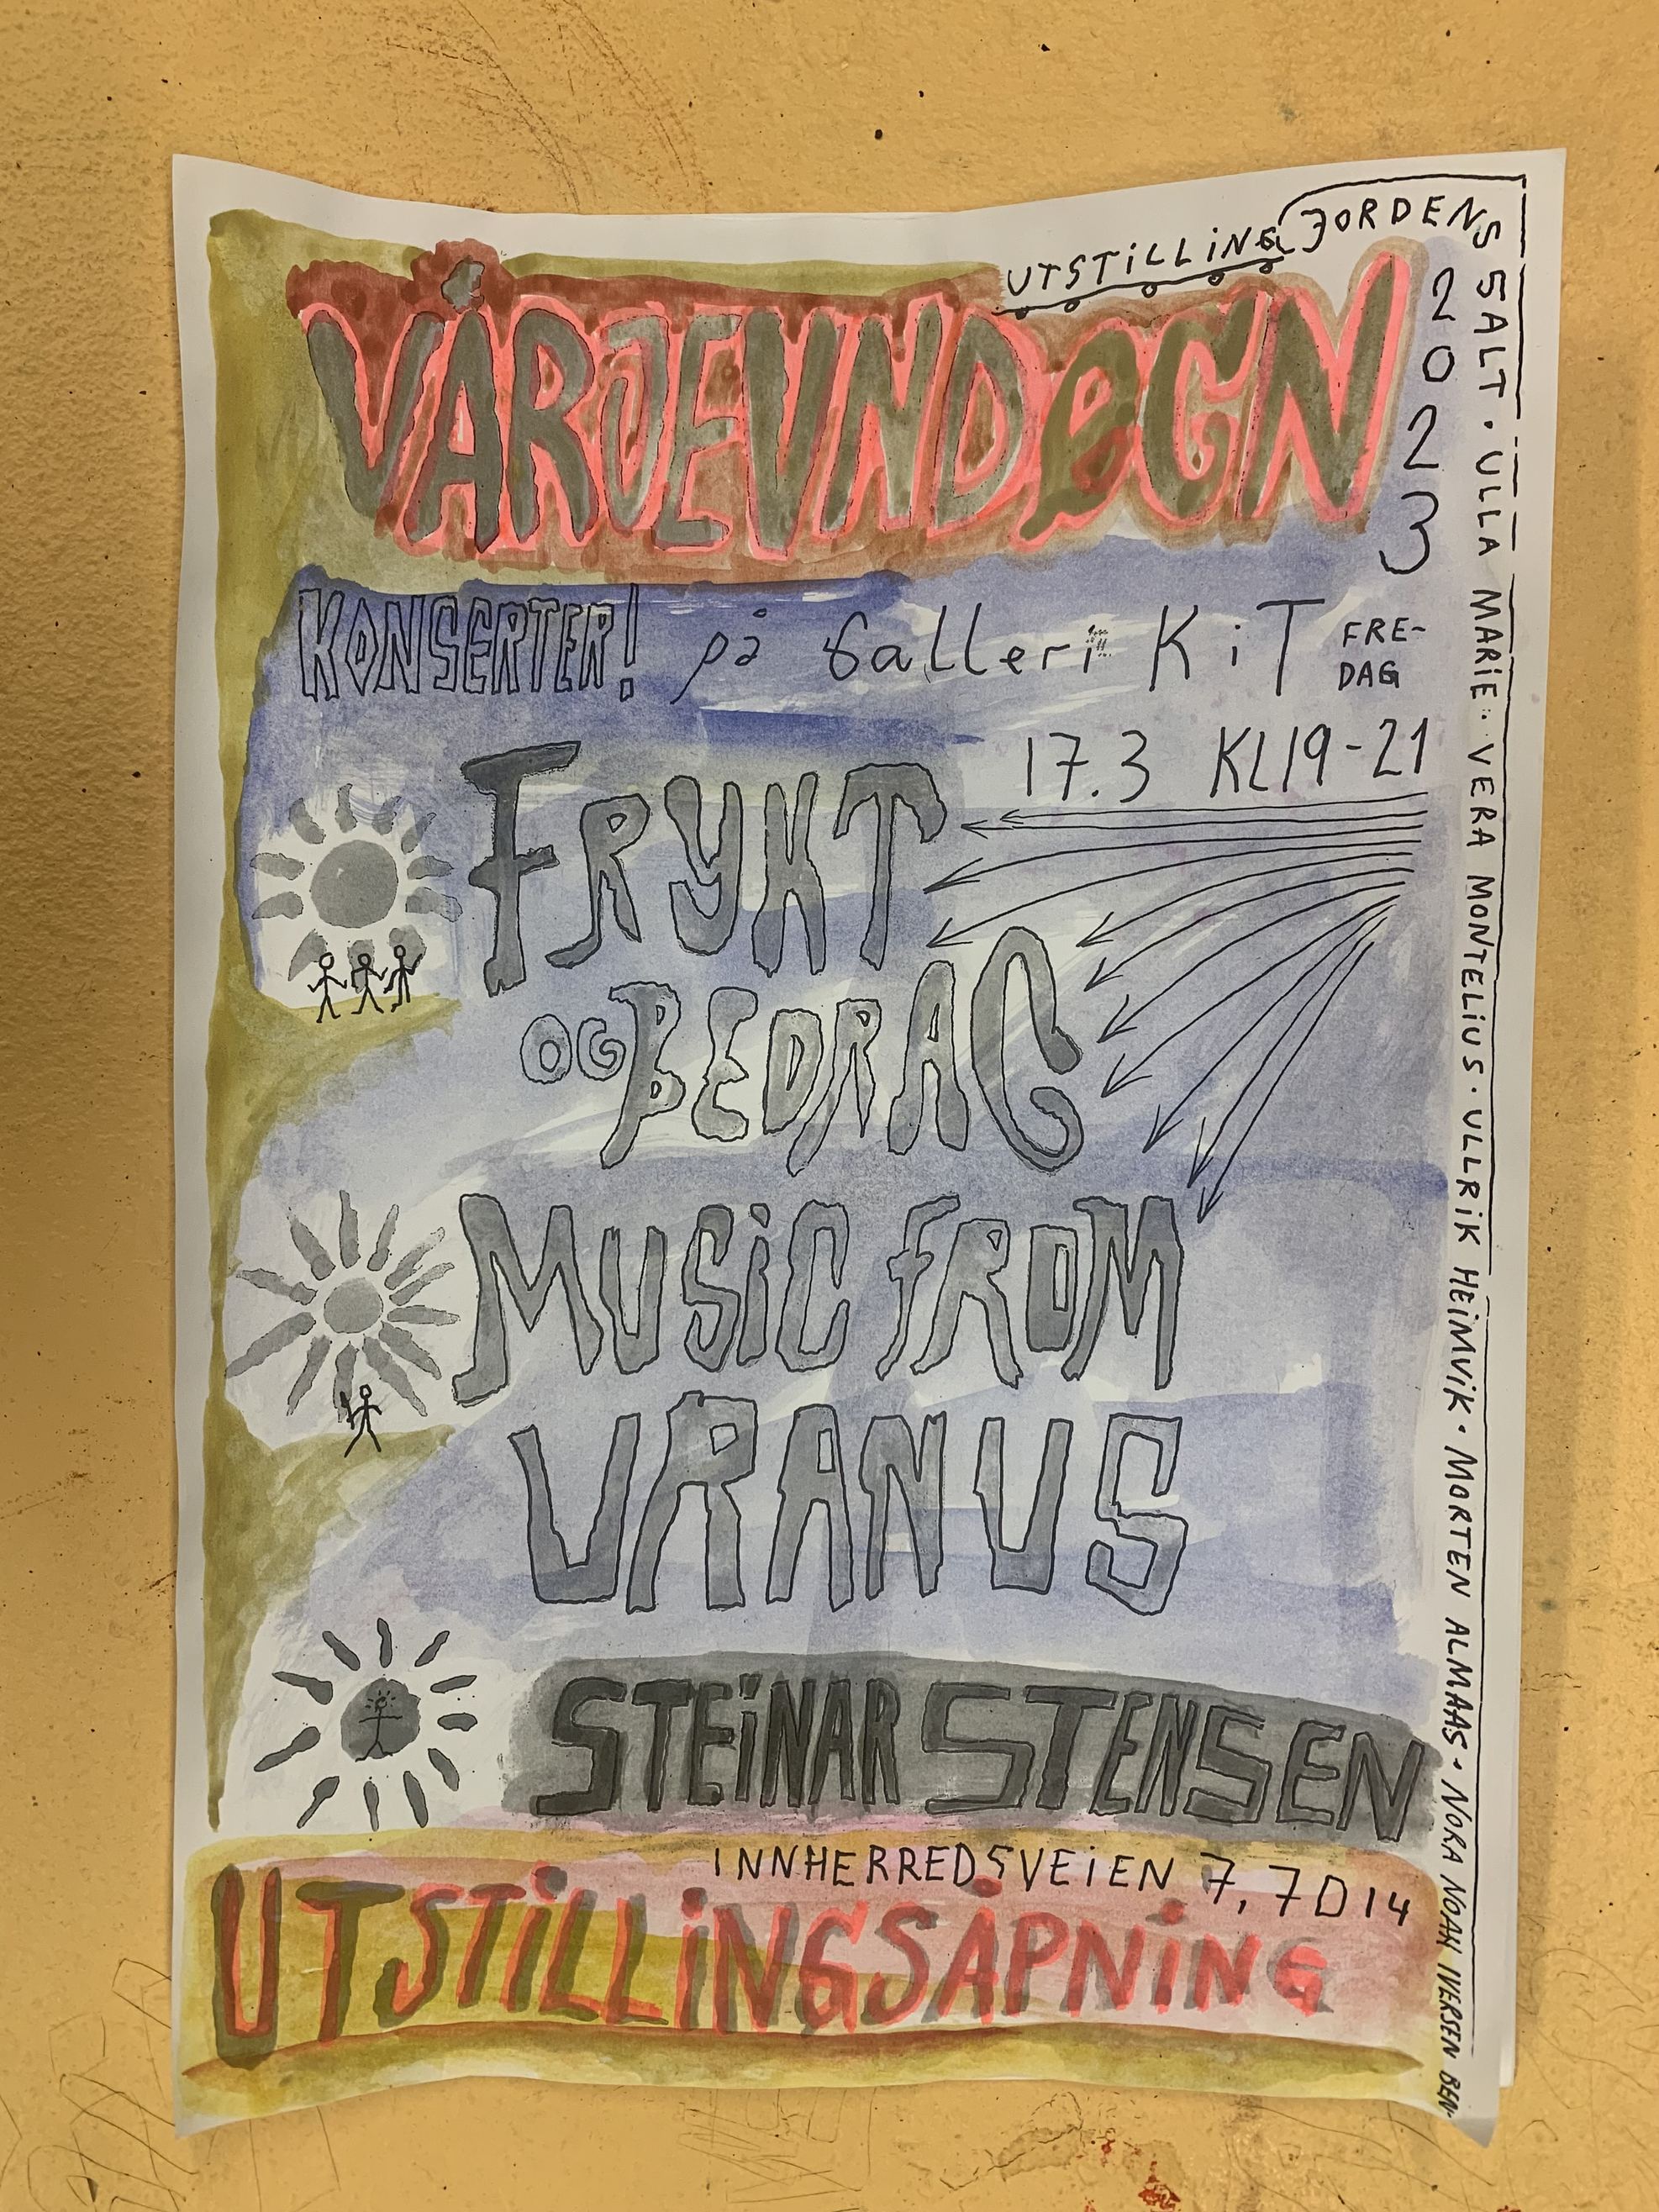 UTSTiLLiNG JORDENS SALT · ULLA MARIE · VERA MONTELiUS · ULLRiK HEiMViK · MORTEN ALMAAS · NORA NOAH IVERSEN BEN-
VÅRJEVNDØGN
2023
KONSERTER! på Galleri KiT FRE-
DAG
17.3 KL19-21
FRYKT
OG BEDRAG
MUSiC FROM
URANUS
STEiNAR STENSEN
INNHERREDSVEiEN 7, 7014
UTSTiLLiNGSÅPNiNG